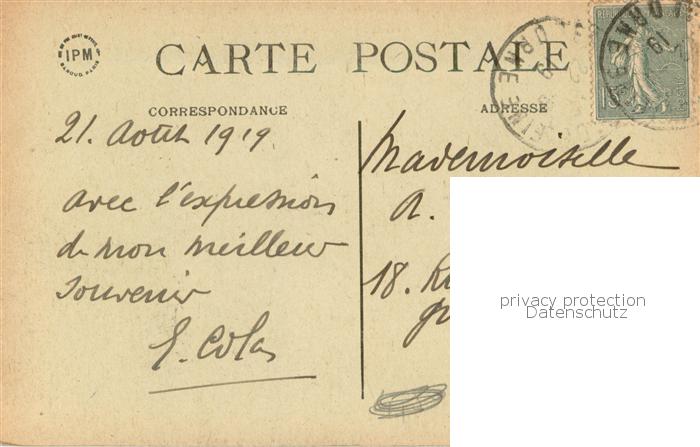 IPM
CARTE POSTALE
CORRESPONDANCE
ADRESSE
21. Août 1919
avec l'expression
de mon meilleur
souvenir
E. Colas
Mademoiselle
A.
18. Ru
privacy protection
Datenschutz